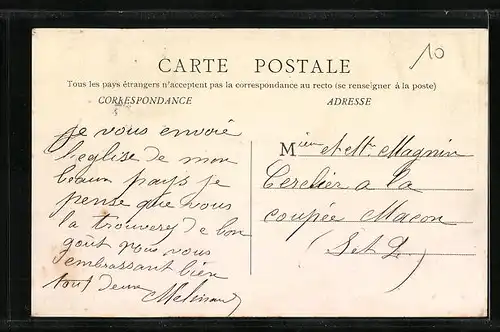 10
CARTE POSTALE
Tous les pays étrangers n'acceptent pas la correspondance au recto (se renseigner à la poste)
CORRESPONDANCE
ADRESSE
Je vous envoie
l'eglise de mon
beau pays je
pense que vous
la trouverez de bon
goût nous vous
embrassant bien
tout deux
Mieur et Me Magnin
Cerclier a la
coupée Macon
(S et L)